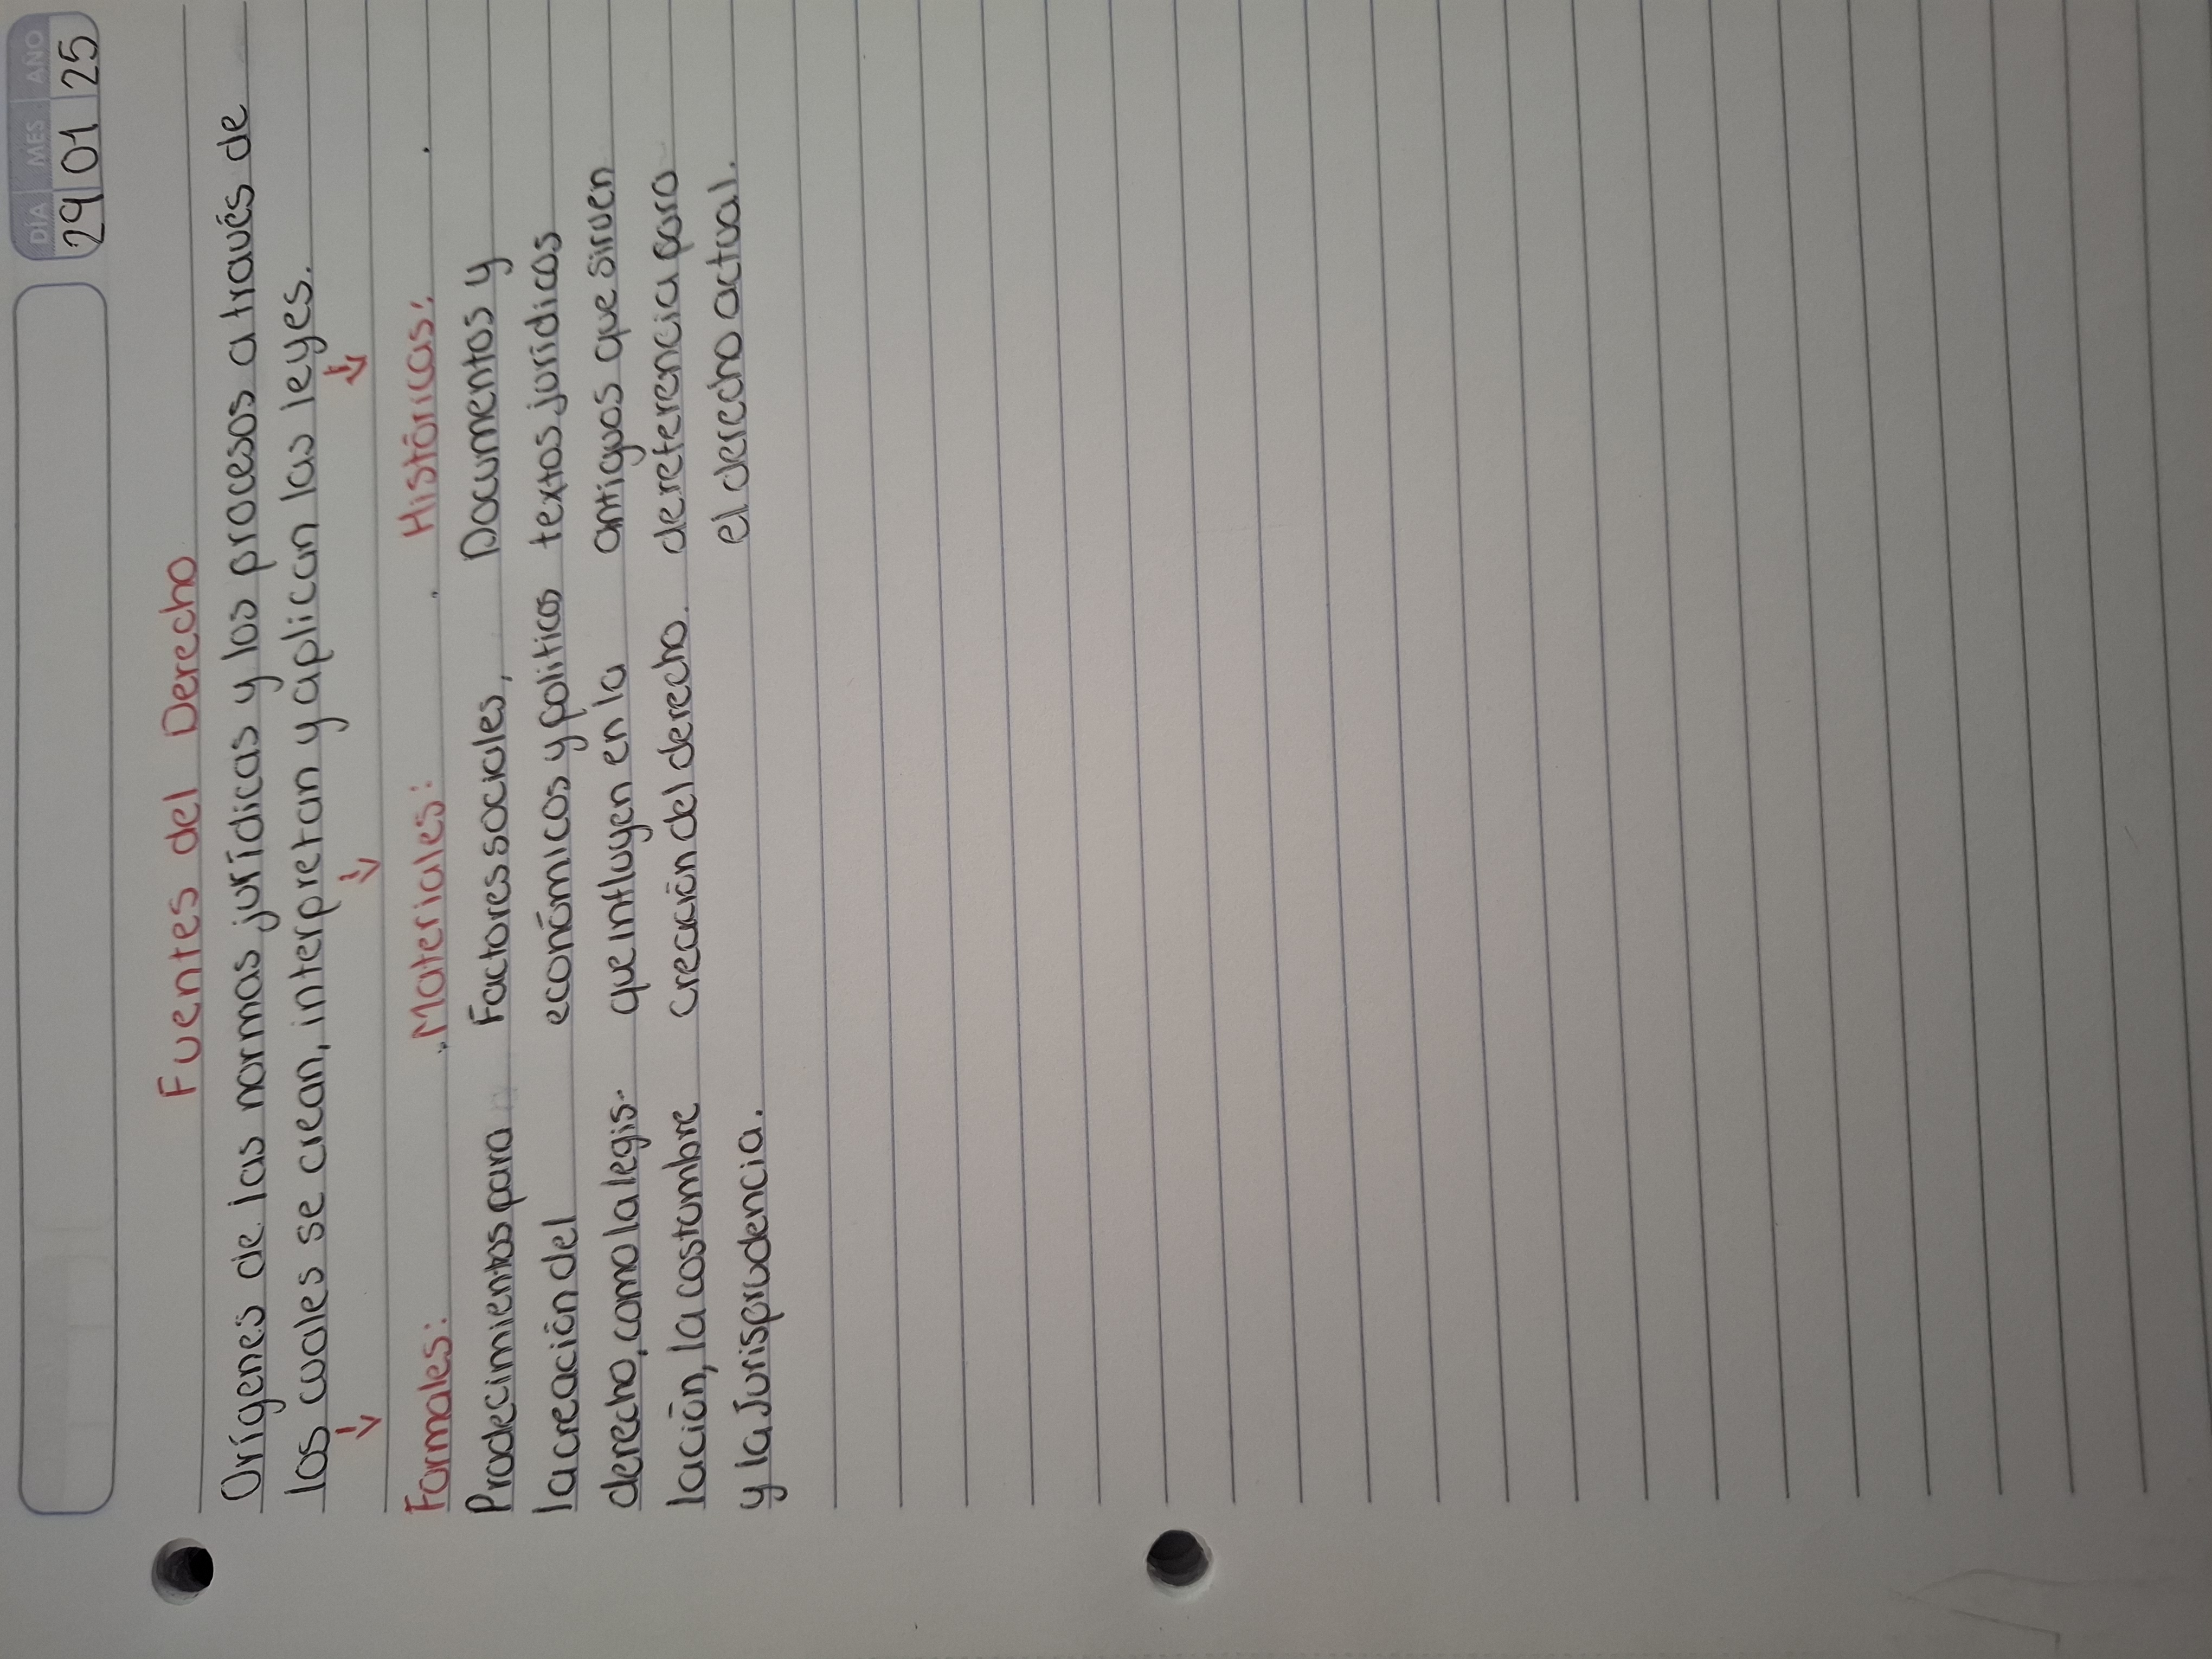 DÍA MES AÑO
29 01 25
Fuentes del Derecho
Orígenes de las normas jurídicas y los procesos a través de
los cuales se crean, interpretan y aplican las leyes.
Formales:
Prodecimientos para
la creación del
derecho, como la legis-
lación, la costumbre
y la Jurisprudencia.
Materiales:
Factores sociales,
económicos y politicos
que influyen en la
creación del derecho.
Históricas:
Documentos y
textos juridicos
antiguos que sirven
de referencia para
el derecho actual.